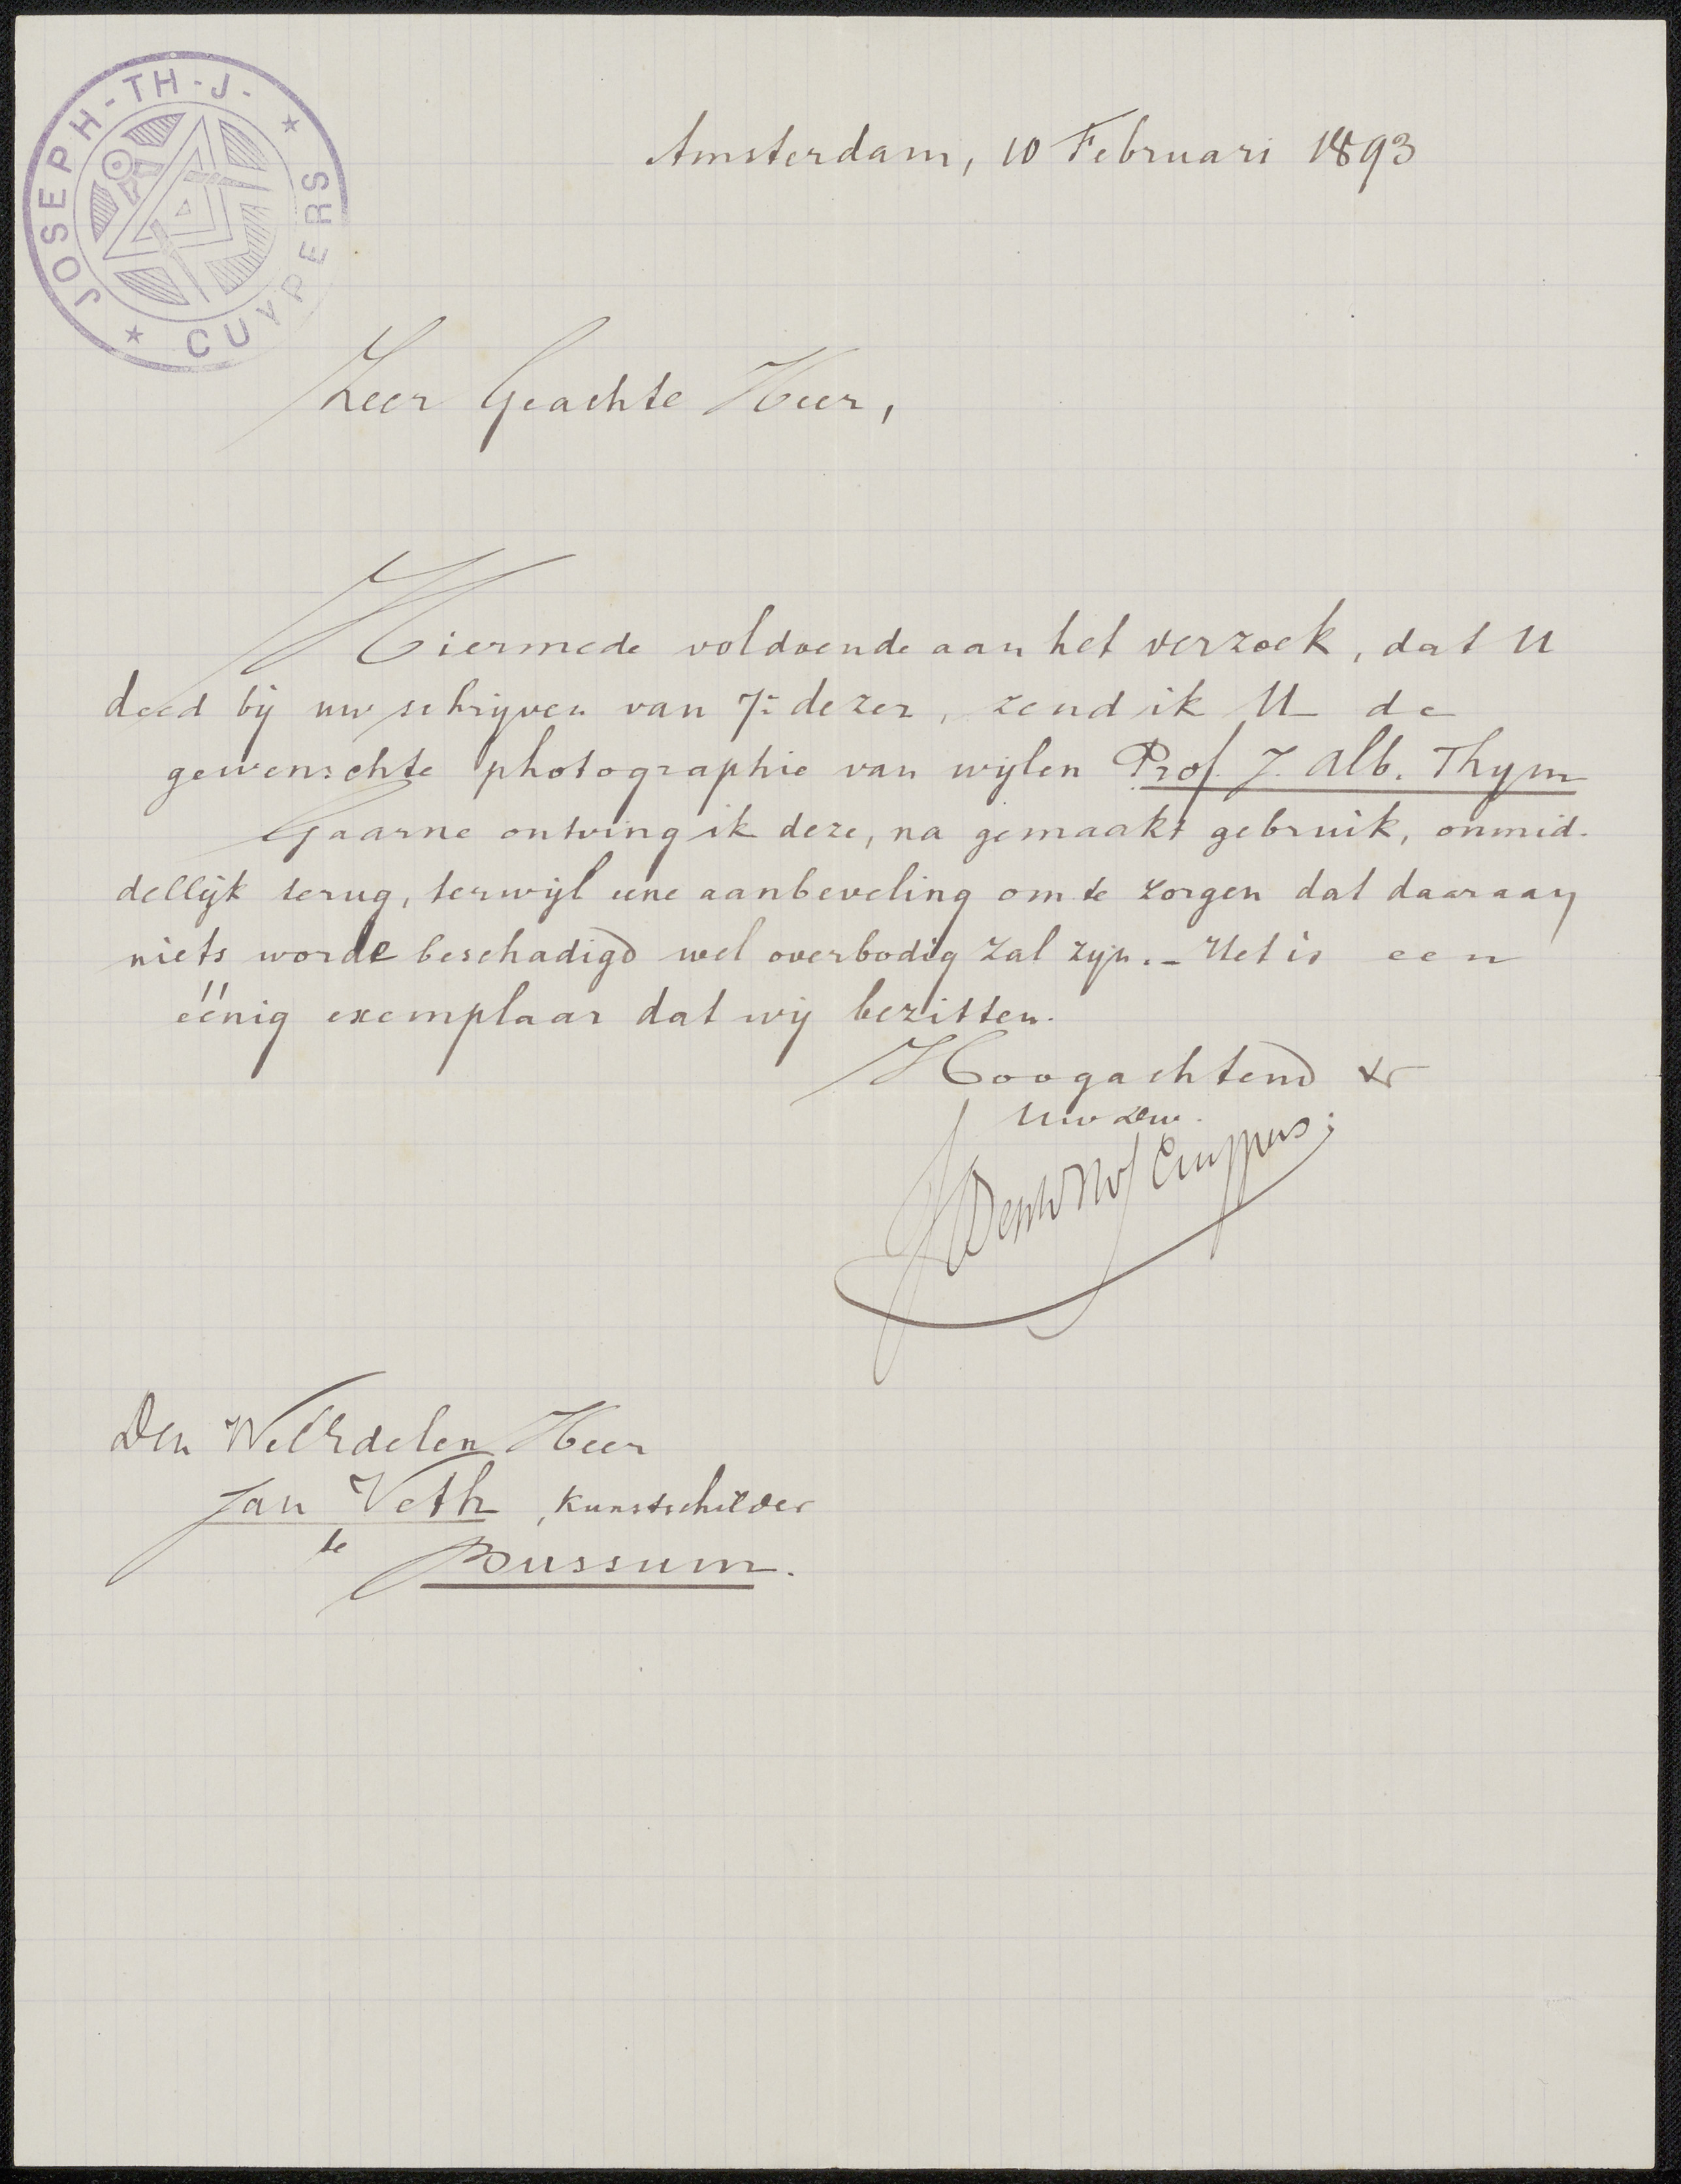 JOSEPH-TH-J-
CUYPERS
Amsterdam, 10 Februari 1893
Zeer Geachte Heer,
Hiermede voldoende aan het verzoek, dat U
deed bij uw schrijven van 7e dezer, zend ik U de
gewenschte photographie van wijlen Prof. J. Alb. Thym
Gaarne ontving ik deze, na gemaakt gebruik, onmid-
dellijk terug, terwijl eene aanbeveling om te zorgen dat daaraan
niets worde beschadigd wel overbodig zal zijn.- Het is een
éénig exemplaar dat wij bezitten.
Hoogachtend
Uw dw.
Cuypers
Den WelEdelen Heer
Jan Veth, Kunstschilder
te
Bussum.